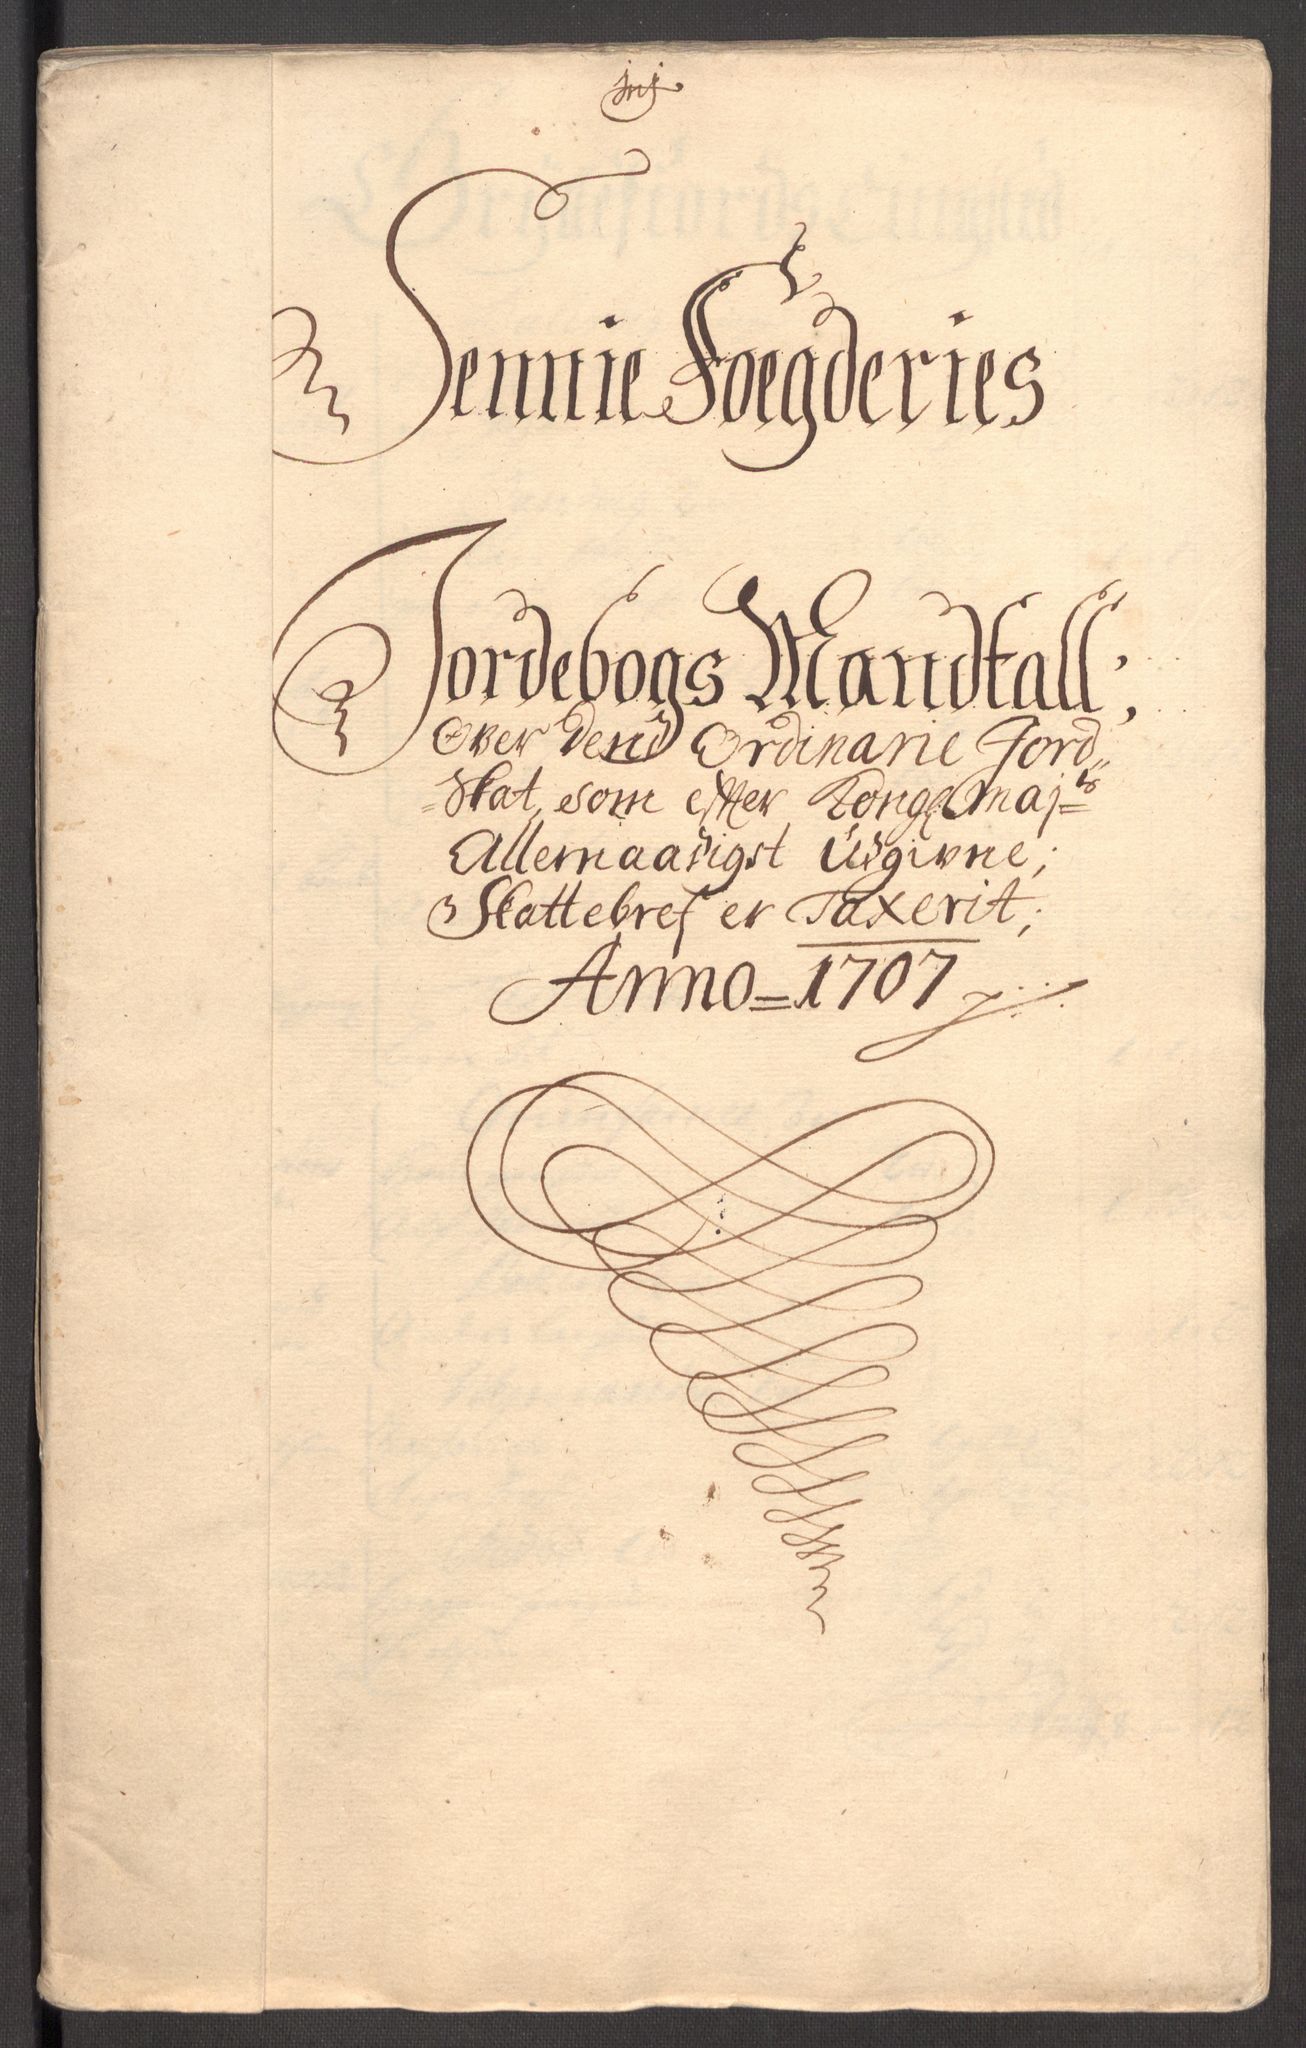 Sennie Foegderies
Jordebogs Mandtall,
Over den Ordinarie Jord
Skat, som efter Kong: Maj:ts
Allernaadigst Udgivne;
Skattebref er Taxerit;
Anno=1707